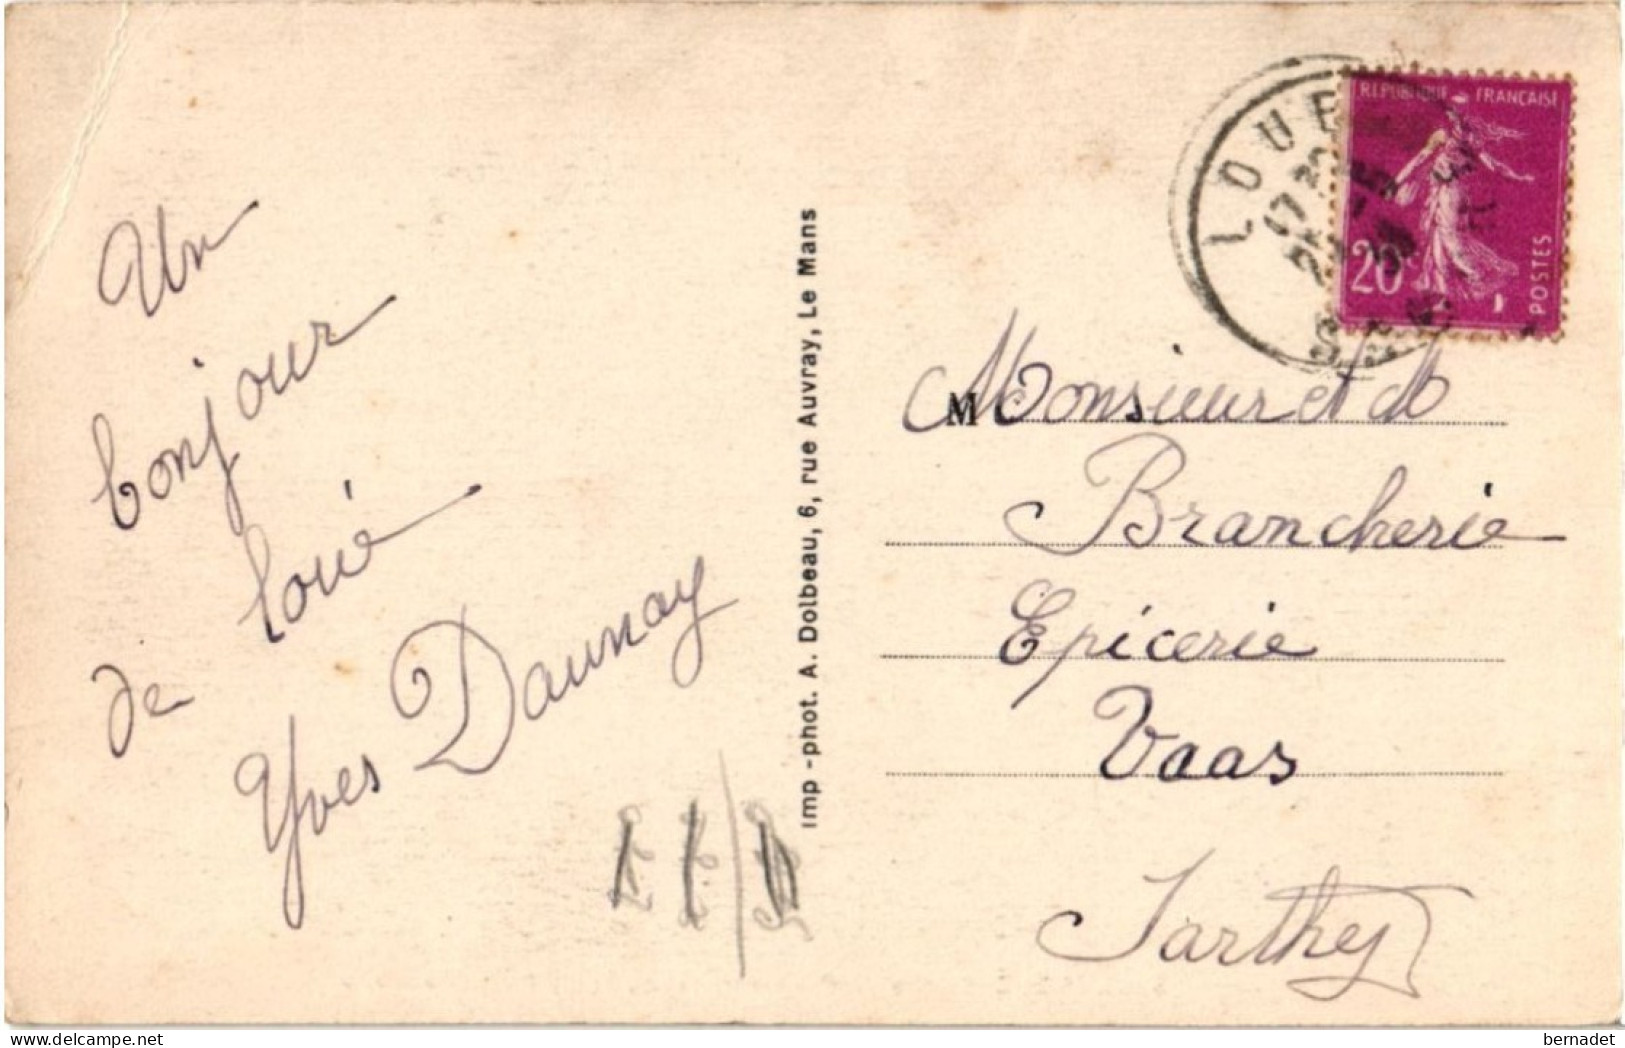 Un
bonjour
de Loué
Yves Daunay
Imp-phot. A. Dolbeau, 6, rue Auvray, Le Mans
LOUE
SARTHE
RÉPUBLIQUE FRANÇAISE
20
POSTES
M Monsieur et M
Brancherie
Epicerie
Vaas
Sarthe
delcampe.net
bernadet